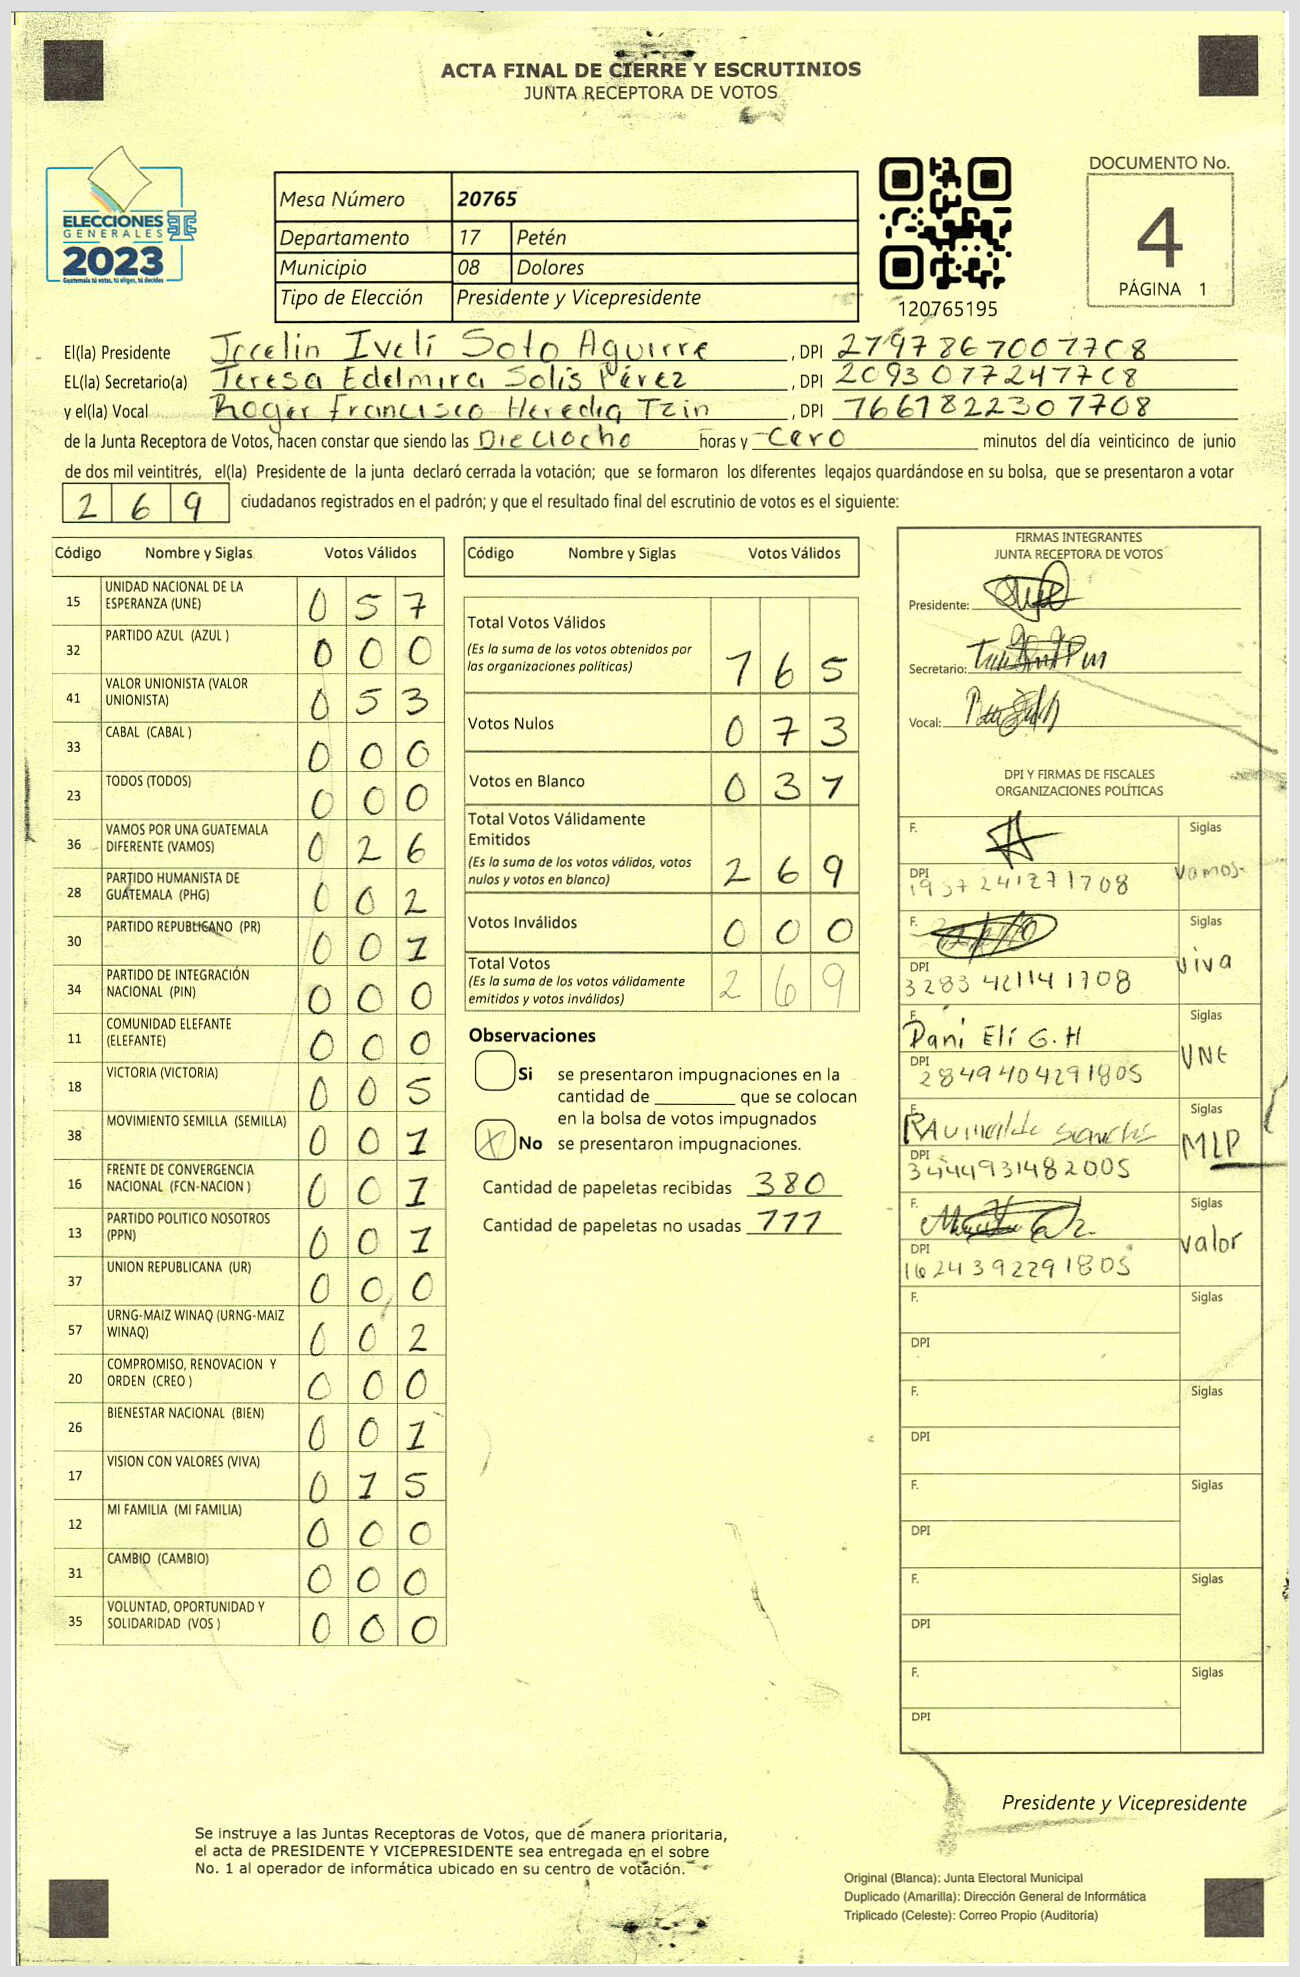 ACTA FINAL DE CIERRE Y ESCRUTINIOS
JUNTA RECEPTORA DE VOTOS
ELECCIONES
GENERALES
2023
Guatemala tú votas, tú eliges, tú decides
Mesa Número 20765
Departamento 17 Petén
Municipio 08 Dolores
Tipo de Elección Presidente y Vicepresidente
120765195
DOCUMENTO No.
4
PÁGINA 1
El(la) Presidente Jocelin Iveli Soto Aguirre, DPI 2797867007708
EL(la) Secretario(a) Teresa Edelmira Solís Pérez, DPI 2093077247708
y el(la) Vocal Roger Francisco Heredia Tzin, DPI 7661822307708
de la Junta Receptora de Votos, hacen constar que siendo las Dieciocho horas y cero minutos del día veinticinco de junio
de dos mil veintitrés, el(la) Presidente de la junta declaró cerrada la votación; que se formaron los diferentes legajos quardándose en su bolsa, que se presentaron a votar
269 ciudadanos registrados en el padrón; y que el resultado final del escrutinio de votos es el siguiente:
Código Nombre y Siglas Votos Válidos
15 UNIDAD NACIONAL DE LA ESPERANZA (UNE) 057
32 PARTIDO AZUL (AZUL ) 000
41 VALOR UNIONISTA (VALOR UNIONISTA) 053
33 CABAL (CABAL ) 000
23 TODOS (TODOS) 000
36 VAMOS POR UNA GUATEMALA DIFERENTE (VAMOS) 026
28 PARTIDO HUMANISTA DE GUATEMALA (PHG) 002
30 PARTIDO REPUBLICANO (PR) 001
34 PARTIDO DE INTEGRACIÓN NACIONAL (PIN) 000
11 COMUNIDAD ELEFANTE (ELEFANTE) 000
18 VICTORIA (VICTORIA) 005
38 MOVIMIENTO SEMILLA (SEMILLA) 001
16 FRENTE DE CONVERGENCIA NACIONAL (FCN-NACION ) 001
13 PARTIDO POLITICO NOSOTROS (PPN) 001
37 UNION REPUBLICANA (UR) 000
57 URNG-MAIZ WINAQ (URNG-MAIZ WINAQ) 002
20 COMPROMISO, RENOVACION Y ORDEN (CREO ) 000
26 BIENESTAR NACIONAL (BIEN) 001
17 VISION CON VALORES (VIVA) 015
12 MI FAMILIA (MI FAMILIA) 000
31 CAMBIO (CAMBIO) 000
35 VOLUNTAD, OPORTUNIDAD Y SOLIDARIDAD (VOS ) 000
Código Nombre y Siglas Votos Válidos
Total Votos Válidos
(Es la suma de los votos obtenidos por las organizaciones políticas) 165
Votos Nulos 073
Votos en Blanco 031
Total Votos Válidamente Emitidos
(Es la suma de los votos válidos, votos nulos y votos en blanco) 269
Votos Inválidos 000
Total Votos
(Es la suma de los votos válidamente emitidos y votos inválidos) 269
Observaciones
Si se presentaron impugnaciones en la
cantidad de ________ que se colocan
en la bolsa de votos impugnados
X No se presentaron impugnaciones.
Cantidad de papeletas recibidas 380
Cantidad de papeletas no usadas 111
FIRMAS INTEGRANTES
JUNTA RECEPTORA DE VOTOS
Presidente:
Secretario:
Vocal:
DPI Y FIRMAS DE FISCALES
ORGANIZACIONES POLÍTICAS
F. Siglas
DPI 1937241271708 Vamos.
F. Siglas
DPI 3283421141708 Viva
F. Dani Elí G.H Siglas
DPI 2849404291805 UNE
F. Siglas
DPI 3444931482005 MLP
F. Siglas
DPI 1624392291805 valor
F. Siglas
DPI
F. Siglas
DPI
F. Siglas
DPI
F. Siglas
DPI
F. Siglas
DPI
Presidente y Vicepresidente
Se instruye a las Juntas Receptoras de Votos, que de manera prioritaria,
el acta de PRESIDENTE Y VICEPRESIDENTE sea entregada en el sobre
No. 1 al operador de informática ubicado en su centro de votación.
Original (Blanca): Junta Electoral Municipal
Duplicado (Amarilla): Dirección General de Informática
Triplicado (Celeste): Correo Propio (Auditoria)